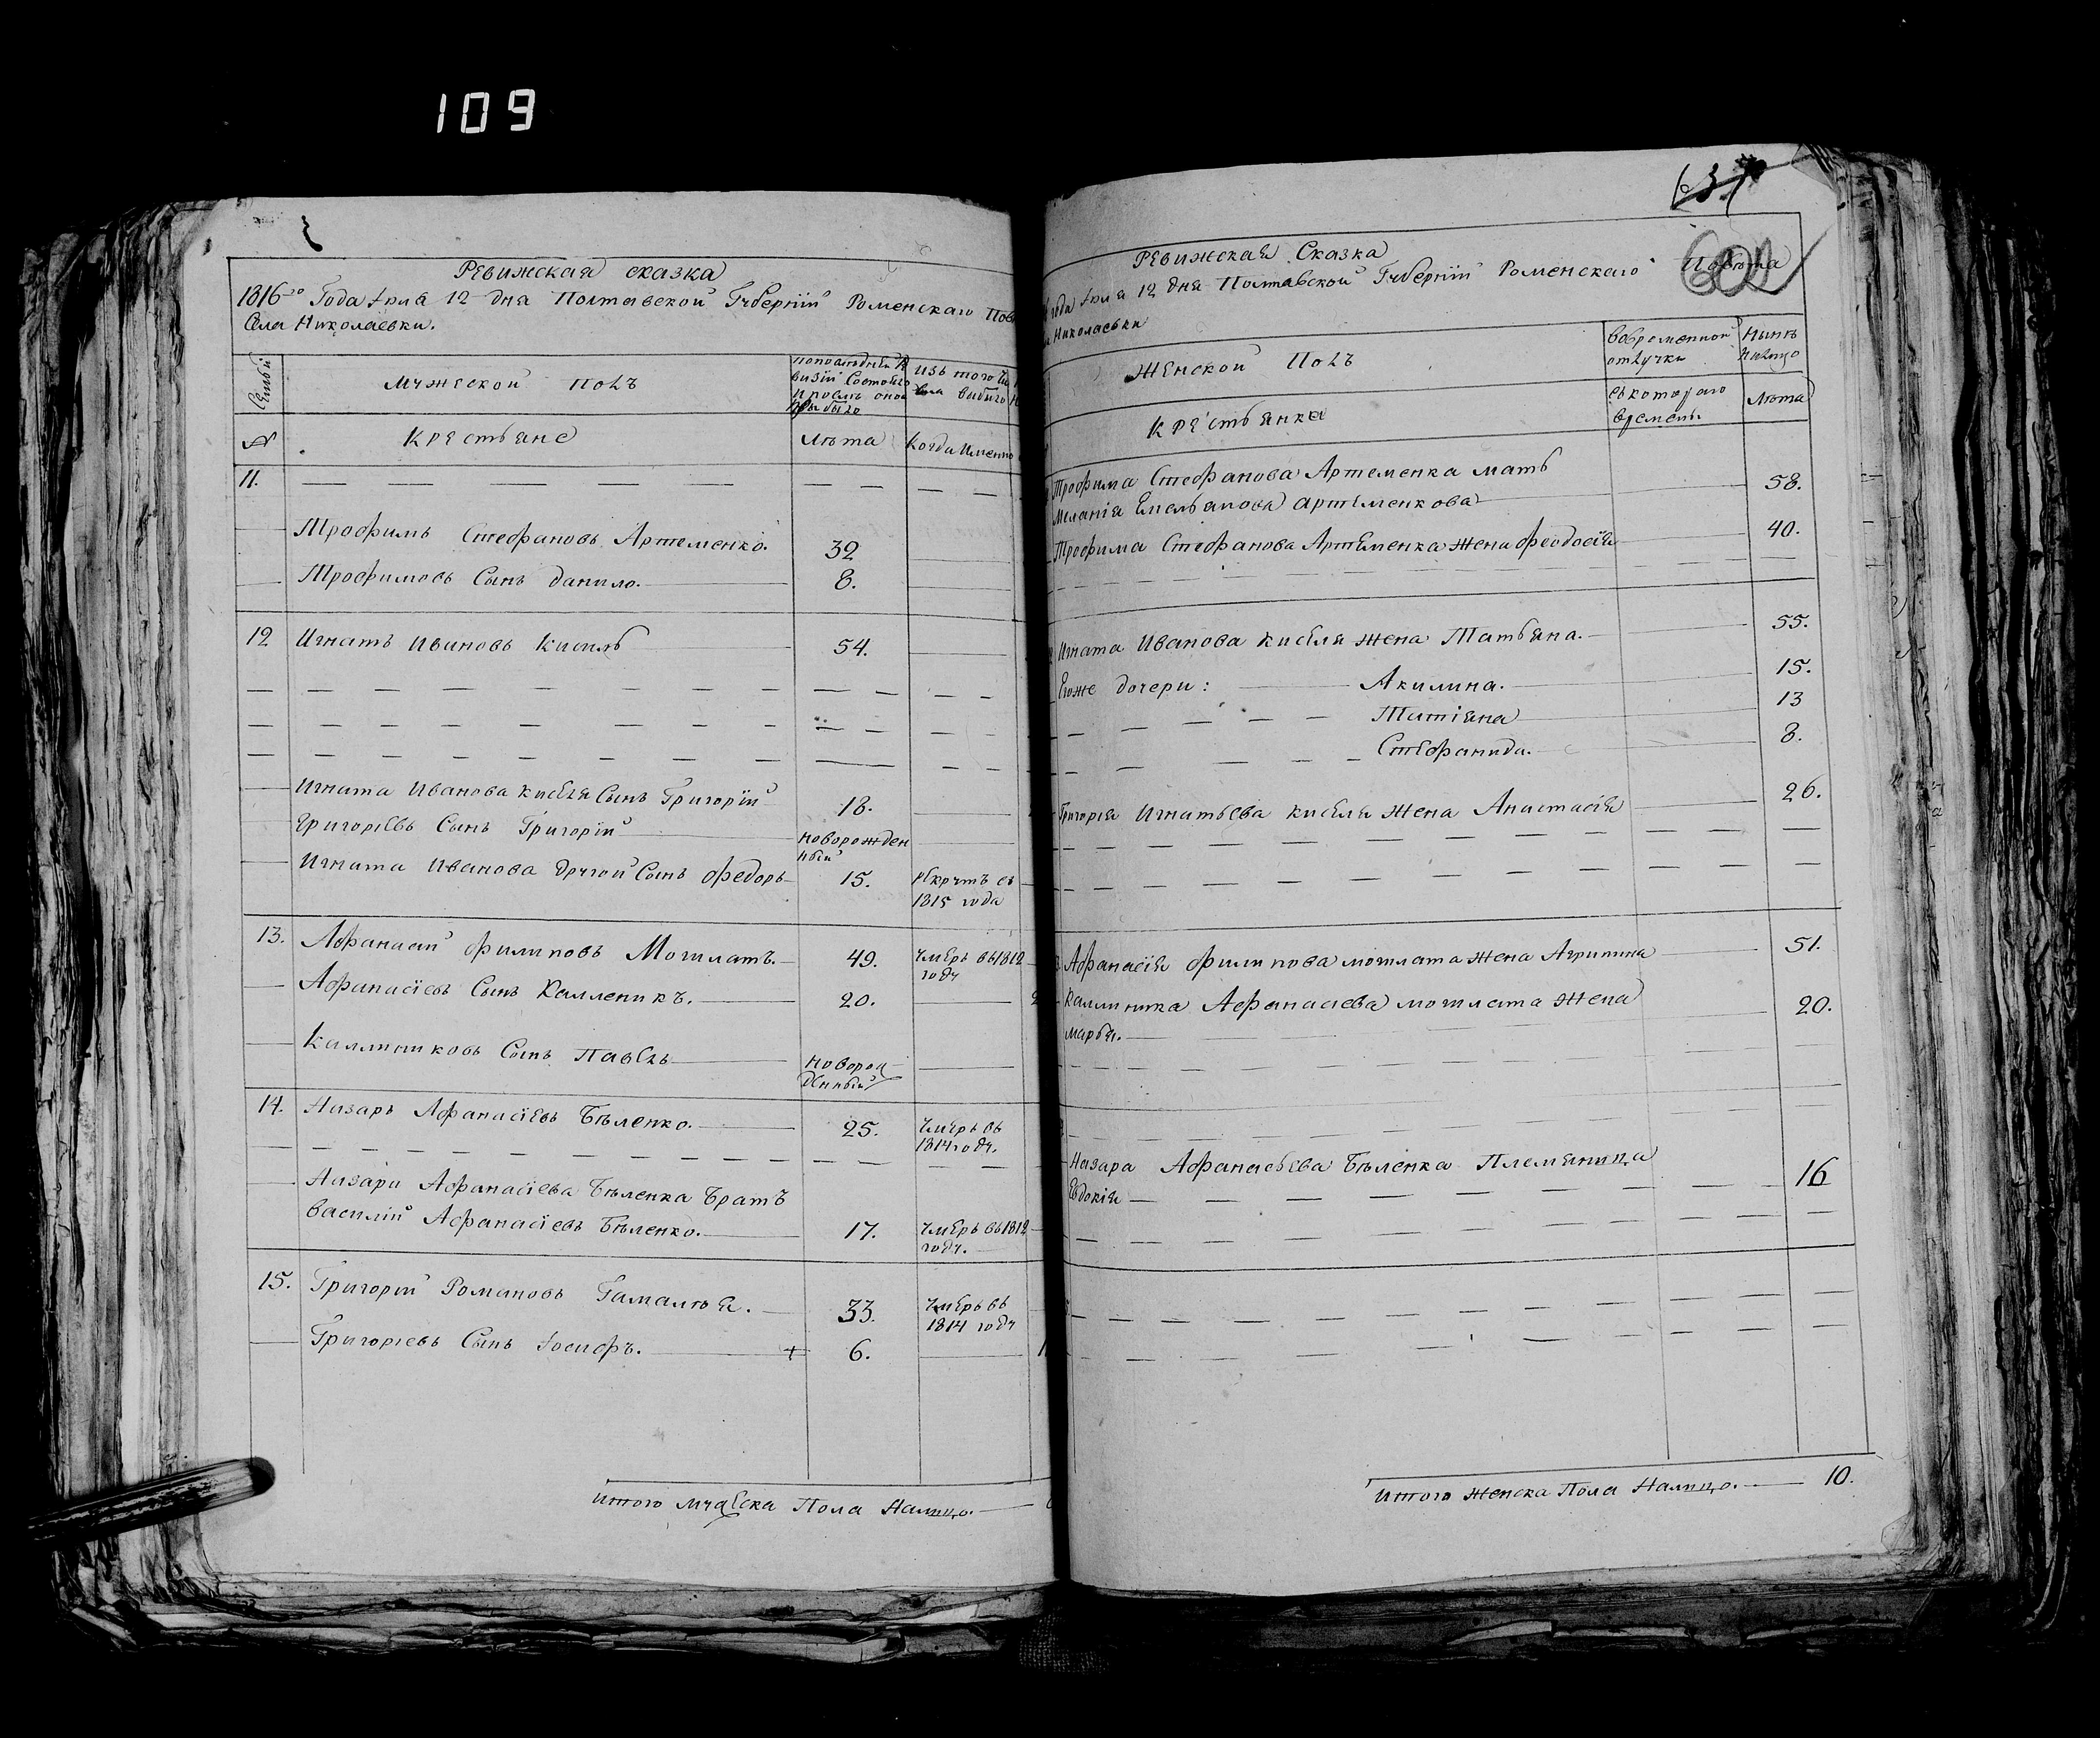 109
Ревижская сказка
1816го Года Іюля 12 дня Полтавской Губерніи Роменскаго Пов
Села Николаевки.
Семьи
Мужеской полъ
по последней Ре
визіи Состояло
и после оной
прибыло
изъ того чи
сла выбыло
№
Крестьяне
Лѣта
Когда Именно
11.
Трофимъ Стефановъ Артеменко. 32
Трофимовъ Сынъ Данило. 8.
12 Игнатъ Ивановъ Кисиль 54.
Игната Иванова Киселя Сынъ Григорій 18.
Григоріевъ Сынъ Григорій новорожден
ный
Игната Иванова другой Сынъ Федоръ 15. рекрутъ съ
1815 года
13. Афанасий Филиповъ Мошлатъ. 49. умеръ въ 1812
году
Афанасіевъ Сынъ Каллениκъ. 20.
Каллиниковъ Сынъ Павелъ новорож
денный
14. Назаръ Афанасіевъ Бѣленко. 25. умеръ въ
1814 году.
Назара Афанасіева Бѣленка Братъ
Василій Афанасіевъ Бѣленко. 17. умеръ въ 1812
году.
15. Григорій Романовъ Гамалюя. 33. умеръ въ
1814 году
Григоріевъ Сынъ Іосифъ. 6.
Итого мужеска Пола Налицо.
631
602
Ревижская Сказка
года Іюля 12 дня Полтавской Губерніи Роменскаго Повѣта
Николаевки
Женской Полъ
Вовременной
отлучки
Нынѣ
налицо
съкотораго
времены
Лѣта
Крестьянка
Трофима Стефанова Артеменка мать
Меланія Емельянова Артеменкова 58.
Трофима Стефанова Артеменка жена Феодосія 40.
Игната Иванова Киселя жена Татьяна. 55.
Егоже дочери: Акилина. 15.
Татіяна 13
Стефанида. 8.
Григорія Игнатьева Киселя жена Анастасія 26.
Афанасія Филипова мошлата жена Агрипина 51.
Каллиника Афанасиева мошлата жена 20.
марья.
Назара Афанасьева Бѣленка Племяница
Евдокія 16
Итого женска Пола Налицо. 10.